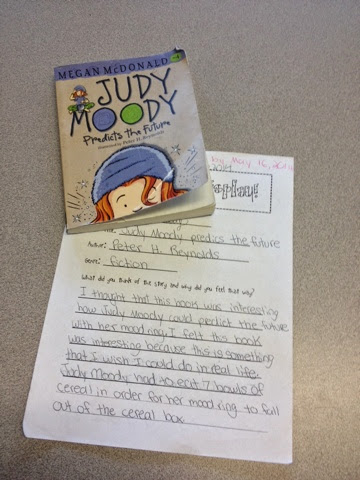 MEGAN McDONALD
JUDY
MOODY
Predicts the Future
Illustrated by Peter H. Reynolds
May 16, 2014
Judy Moody predics the future
Author: Peter H. Reynolds
Genre: fiction
What did you think of the story and why did you feel that way?
I thought that this book was interesting
how Judy Moody could predict the future
with her mood ring. I felt this book
was interesting because this is something
that I wish I could do in real life.
Judy Moody had to eat 7 bowls of
cereal in order for her mood ring to fall
out of the cereal box